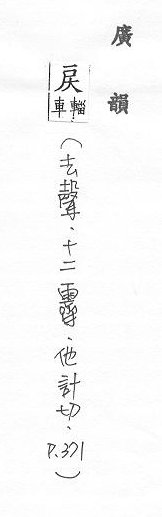 廣韻
戻輜車
（去聲．十二霽．他計切．P.371）